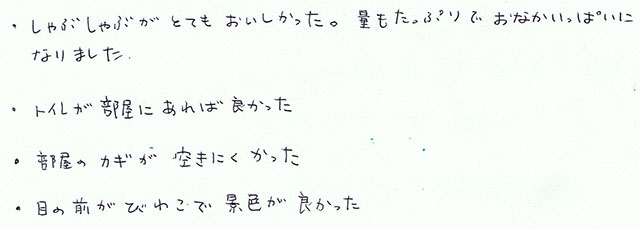 ・しゃぶしゃぶがとてもおいしかった。量もたっぷりでおなかいっぱいに
なりました.
・トイレが部屋にあれば良かった
・部屋のカギが空きにくかった
・目の前がびわこで景色が良かった